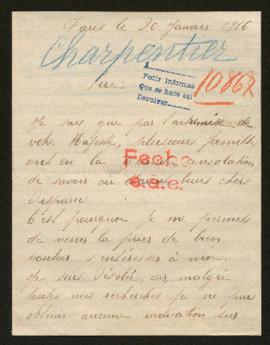 Paris le 20 Janvier 1916
Charpentier
A
Pedir informes
que se hace así
Devolver
10867
Sire
Je sais que par l'entremise de
votre Majesté, plusieurs familles
ont eu la consolation
de savoir où leurs chers
Disparus.
C'est pourquoi je me permets
de venir la prier de bien
vouloir s'intéresser à moi.
Je suis désolée, car malgré
toutes mes recherches je ne puis
obtenir aucune indication sur